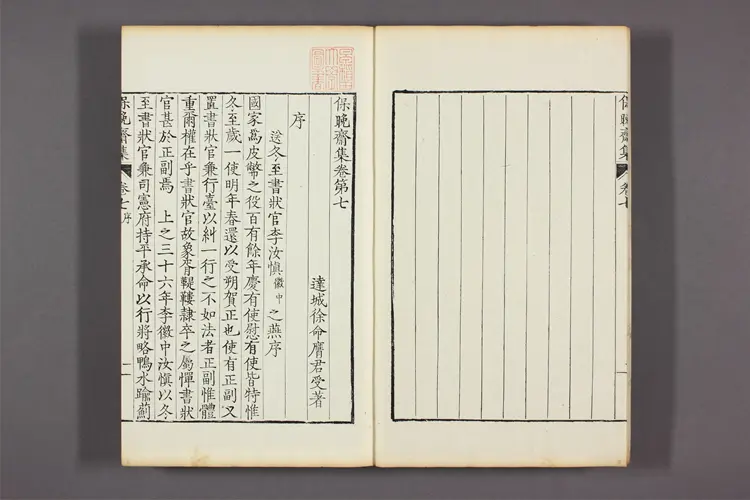 保晩齋集
卷七
保晩齋集卷第七
達城徐命膺君受著
序
送冬至書狀官李汝愼徽中之燕序
國家爲皮幣之役百有餘年慶有使慰有使皆特惟
冬至歲一使明年春還以受朔賀正也使有正副又
置書狀官兼行臺以糾一行之不如法者正副惟體
重爾權在乎書狀官故象胥鞮鞻隷卒之屬憚書狀
官甚於正副焉 上之三十六年李徽中汝愼以冬
至書狀官兼司憲府持平承命以行將略鴨水踰薊
保晩齋集
卷七
序
一